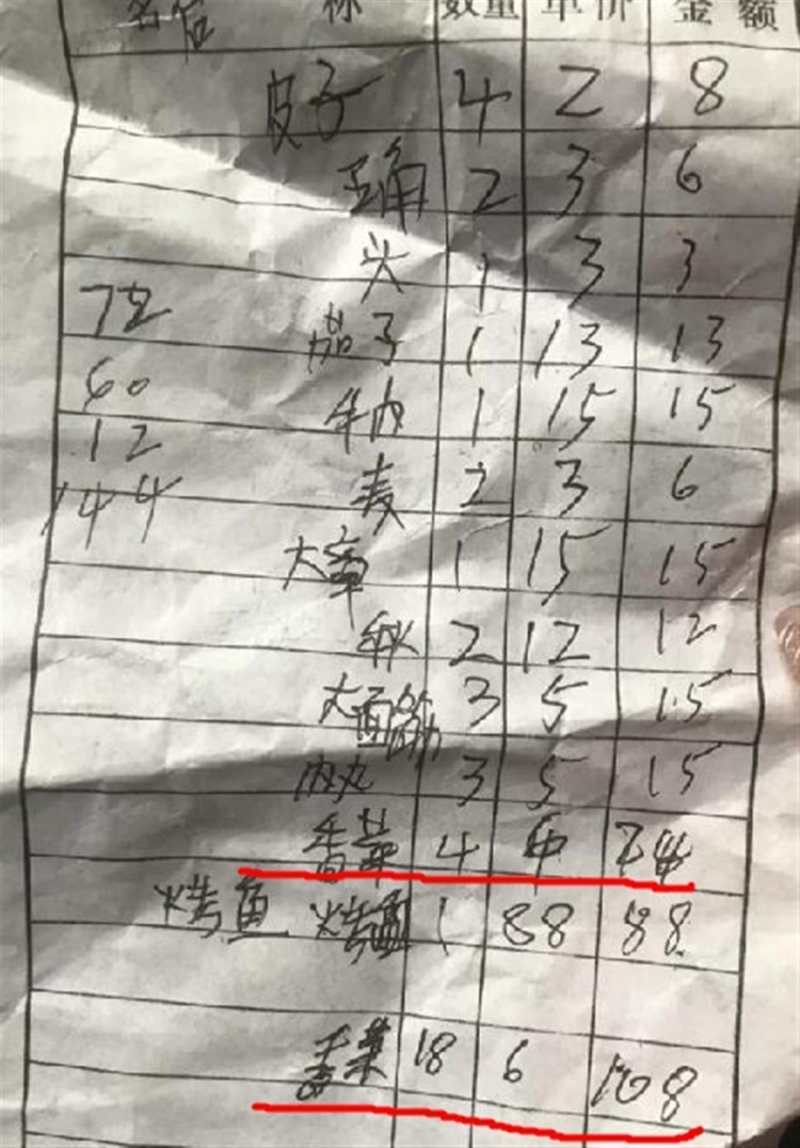 名 称 数量 单价 金额
皮子 4 2 8
2 3 6
头 1 3 3
72 茄子 1 13 13
60 牛肉 1 15 15
12 麦 2 3 6
144
大章 1 15 15
2 12 12
大面筋 3 5 15
肉丸 3 5 15
香菜 4 6 24
烤鱼 烤鱼 1 88 88
香菜 18 6 108